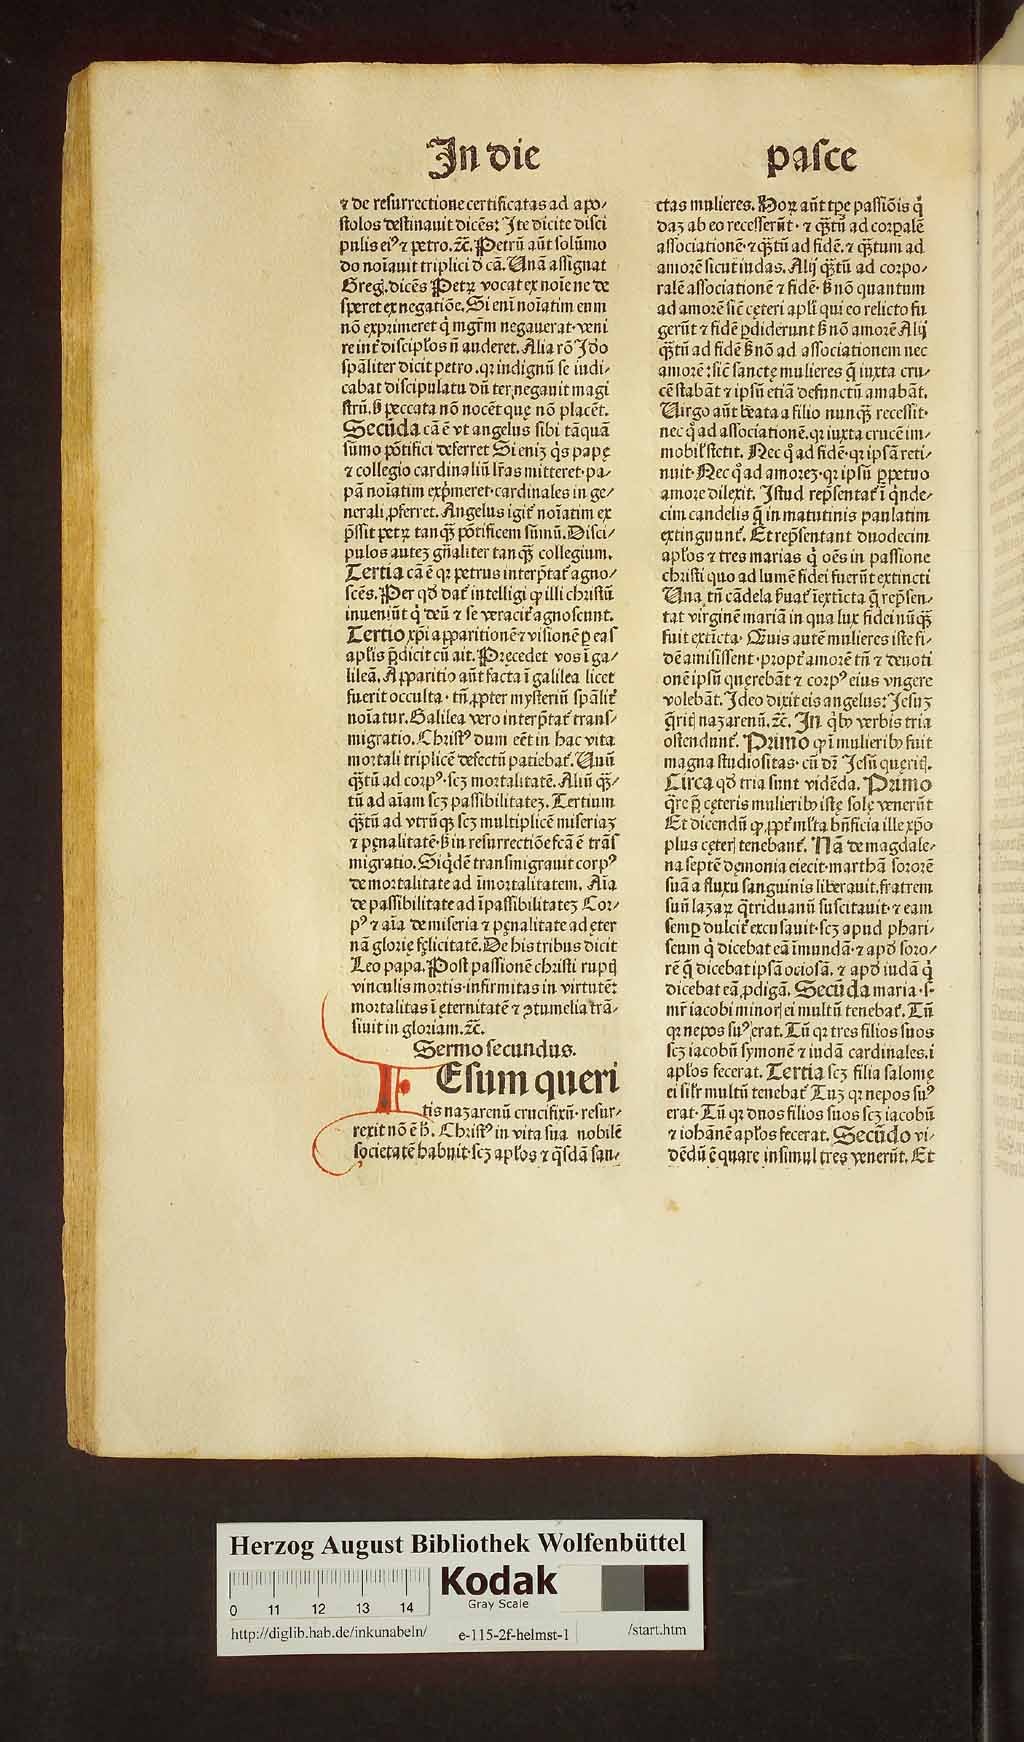 In die pasce
⁊ de resurrectione certificatas ad apo⸗
stolos destinauit dicēs: Ite dicite disci
pulis eiꝰ ⁊ petro.ꝛc̄. Petrū aūt solūmo
do noīauit triplici d̓ cā. Unā assignat
Greg̓. dicēs Petrꝝ vocat ex noīe ne de
speret ex negatiōe. Si enī noīatim eum
nō exprimeret q̇ mgr̄m negauerat·veni
re int̓ discipl̓os n̄ auderet. Alia rō Ido
spāliter dicit petro.qꝛ indignū se iudi⸗
cabat discipulatu dū ter negauit magi
strū. ß peccata nō nocēt quę nō placēt.
Secūda cā ē vt angelus sibi tāquā
sūmo pōtifici deferret Si enīꝫ q̇s papę
⁊ collegio cardinaliū lr̄as mitteret·pa⸗
pā noīatim exp̄meret·cardinales in ge⸗
nerali ꝓferret. Angelus igit̄ noīatim ex
p̄ssit petrꝝ tanqꝫ̄ pōtificem sūmū. Disci⸗
pulos auteꝫ gn̄aliter tanqꝫ̄ collegium.
Tertia cā ē qꝛ petrus interp̄tat̄ agno⸗
scēs. Per qd̓ dat̄ intelligi ꝙ illi christū
inueniūt q̇ deū ⁊ se veracit̓ agnoscunt.
Tertio xp̄i apparitionē ⁊ visionē ꝑ eas
apl̓is p̄dicit cū ait. Pręcedet vos ī ga⸗
lileā. Apparitio aūt facta ī galilea licet
fuerit occulta · tn̄ ꝓpter mysteriū spālit̓
noīatur. Galilea vero interp̄tat̄ trans⸗
migratio. Christꝰ dum eēt in hac vita
mortali triplicē defectū patiebat̄. Unū
qꝫ̄tū ad corpꝰ·scꝫ mortalitatē. Aliū qꝫ̄⸗
tū ad aīam scꝫ passibilitateꝫ. Tertium
qꝫ̄tū ad vtrūqꝫ scꝫ multiplicē miseriaꝫ
⁊ pęnalitatē·ß in resurrectiōe fc̄a ē trās
migratio. Siq̇dē transmigrauit corpꝰ
de mortalitate ad īmortalitatem. Aīa
de passibilitate ad īpassibilitateꝫ Cor⸗
pꝰ ⁊ aīa de miseria ⁊ pęnalitate ad ęter
nā glorię fęlicitatē. De his tribus dicit
Leo papa. Post passionē christi ruptꝭ
vinculis mortis·infirmitas in virtutē:
mortalitas ī ęternitatē ⁊ ꝯtumelia trā⸗
siuit in gloriam.ꝛc̄.
Sermo secundus.
IEsum queri
tis nazarenū crucifixū·resur⸗
rexit nō ē h̓. Christꝰ in vita sua nobilē
societatē habuit·scꝫ apl̓os ⁊ q̄sdā san⸗
ctas mulieres. Hoꝝ aūt tꝑe passiōis q̇
daꝫ ab eo recesserūt·⁊ qꝫ̄tū ad corpalē
associationē·⁊ qꝫ̄tū ad fidē.⁊ qꝫ̄tum ad
amorē sicut iudas. Alij qꝫ̄tū ad corpo⸗
ralē associationē ⁊ fidē·ß nō quantum
ad amorē sic̄ cęteri apl̓i qui eo relicto fu
gerūt ⁊ fidē ꝑdiderunt ß nō amorē Alij
qꝫ̄tū ad fidē ß nō ad associationem nec
amorē: sic̄ sanctę mulieres q̄ iuxta cru⸗
cē stabāt ⁊ ipsū etiā defunctū amabāt.
Uirgo aūt beata a filio nunqꝫ̄ recessit·
nec qͦ ad associationē.qꝛ iuxta crucē im⸗
mobil̓ stetit. Nec qͦ ad fidē·qꝛ ipsā reti⸗
nuit·Nec qͦ ad amoreꝫ·qꝛ ipsū ꝑpetuo
amore dilexit. Istud rep̄sentat̄ ī q̇nde⸗
cim candelis q̄ in matutinis paulatim
extingunt̄. Et rep̄sentant duodecim
apl̓os ⁊ tres marias q̇ oēs in passione
christi quo ad lumē fidei fuerūt extincti
Una tn̄ cādela ẜuat̄ īexticta q̄ rep̄sen⸗
tat virginē mariā in qua lux fidei nūqꝫ̄
fuit exticta· Quis autē mulieres iste fi⸗
dē amisissent·propt̓ amorē tn̄ ⁊ deuoti
onē ipsū querebāt ⁊ corpꝰ eius vngere
volebāt. Ideo dixit eis angelus: Iesuꝫ
q̄ritꝭ nazarenū.ꝛc̄. In q̇bꝰ verbis tria
ostendunt̄. Primo ꝙ ī mulieribꝰ fuit
magna studiositas·cū dr̄ Iesū quęritꝭ.
Circa qd̓ tria sunt vidēda. Primo
q̄re p̄ cęteris mulieribꝰ istę solę venerūt
Et dicendū ꝙ ꝓpt̓ ml̓ta bn̄ficia ille xp̄o
plus cęterꝭ tenebant̄. Nā de magdale⸗
na septē dęmonia eiecit·marthā sororē
suā a fluxu sanguinis liberauit.fratrem
suū lazaꝝ q̄triduanū suscitauit·⁊ eam
semꝑ dulcit̓ excusauit·scꝫ apud phari⸗
seum q̇ dicebat eā īmundā·⁊ apd̓ soro⸗
rē q̄ dicebat ipsā ociosā. ⁊ apd̓ iudā q̇
dicebat eā ꝓdigā. Secūda maria·s·
mr̄ iacobi minorꝭ ei multū tenebat̄. Tū
qꝛ nepos suꝰ erat. Tū qꝛ tres filios suos
scꝫ iacobū symonē ⁊ iudā cardinales.i
apl̓os fecerat. Tertia scꝫ filia salomę
ei sil̓r multū tenebat̄ Tuꝫ qꝛ nepos suꝰ
erat·Tū qꝛ duos filios suos scꝫ iacobū
⁊ iohānē apl̓os fecerat. Secūdo vi⸗
dēdū ē quare insimul tres venerūt. Et
Herzog August Bibliothek Wolfenbüttel
Kodak
Gray Scale
0 11 12 13 14
http://diglib.hab.de/inkunabeln/ e-115-2f-helmst-1 /start.htm